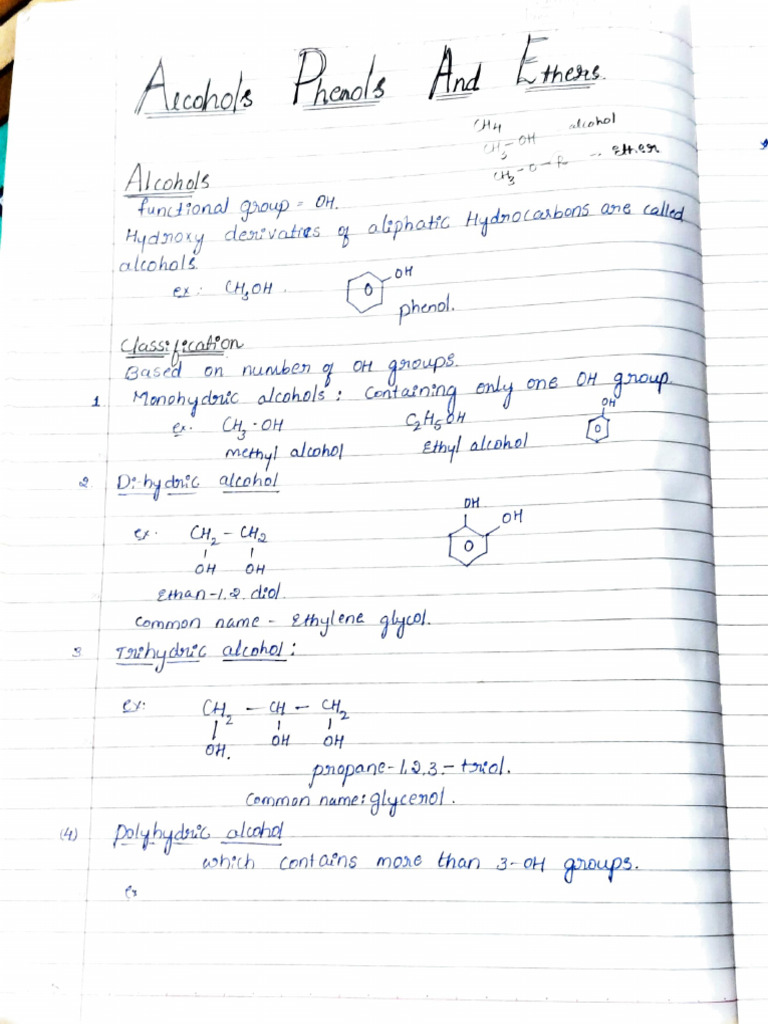 Alcohols Phenols And Ethers.
CH4
CH3-OH alcohol
CH3-O-R -- Ether
Alcohols
functional group = OH.
Hydroxy derivaties of aliphatic Hydrocarbons are called
alcohols.
ex: CH3OH. OH
phenol.
Classification
Based on number of OH groups.
1. Monohydric alcohols: Containing only one OH group.
ex. CH3-OH C2H5OH OH
methyl alcohol Ethyl alcohol
2. Di-hydric alcohol
OH
OH
ex. CH2-CH2
OH OH
Ethan-1,2.diol.
Common name - Ethylene glycol.
3 Trihydric alcohol:
ex: CH2 - CH - CH2
OH. OH OH
propane-1,2,3.-triol.
Common name: glycerol.
(4) polyhydric alcohol
which contains more than 3-OH groups.
ex